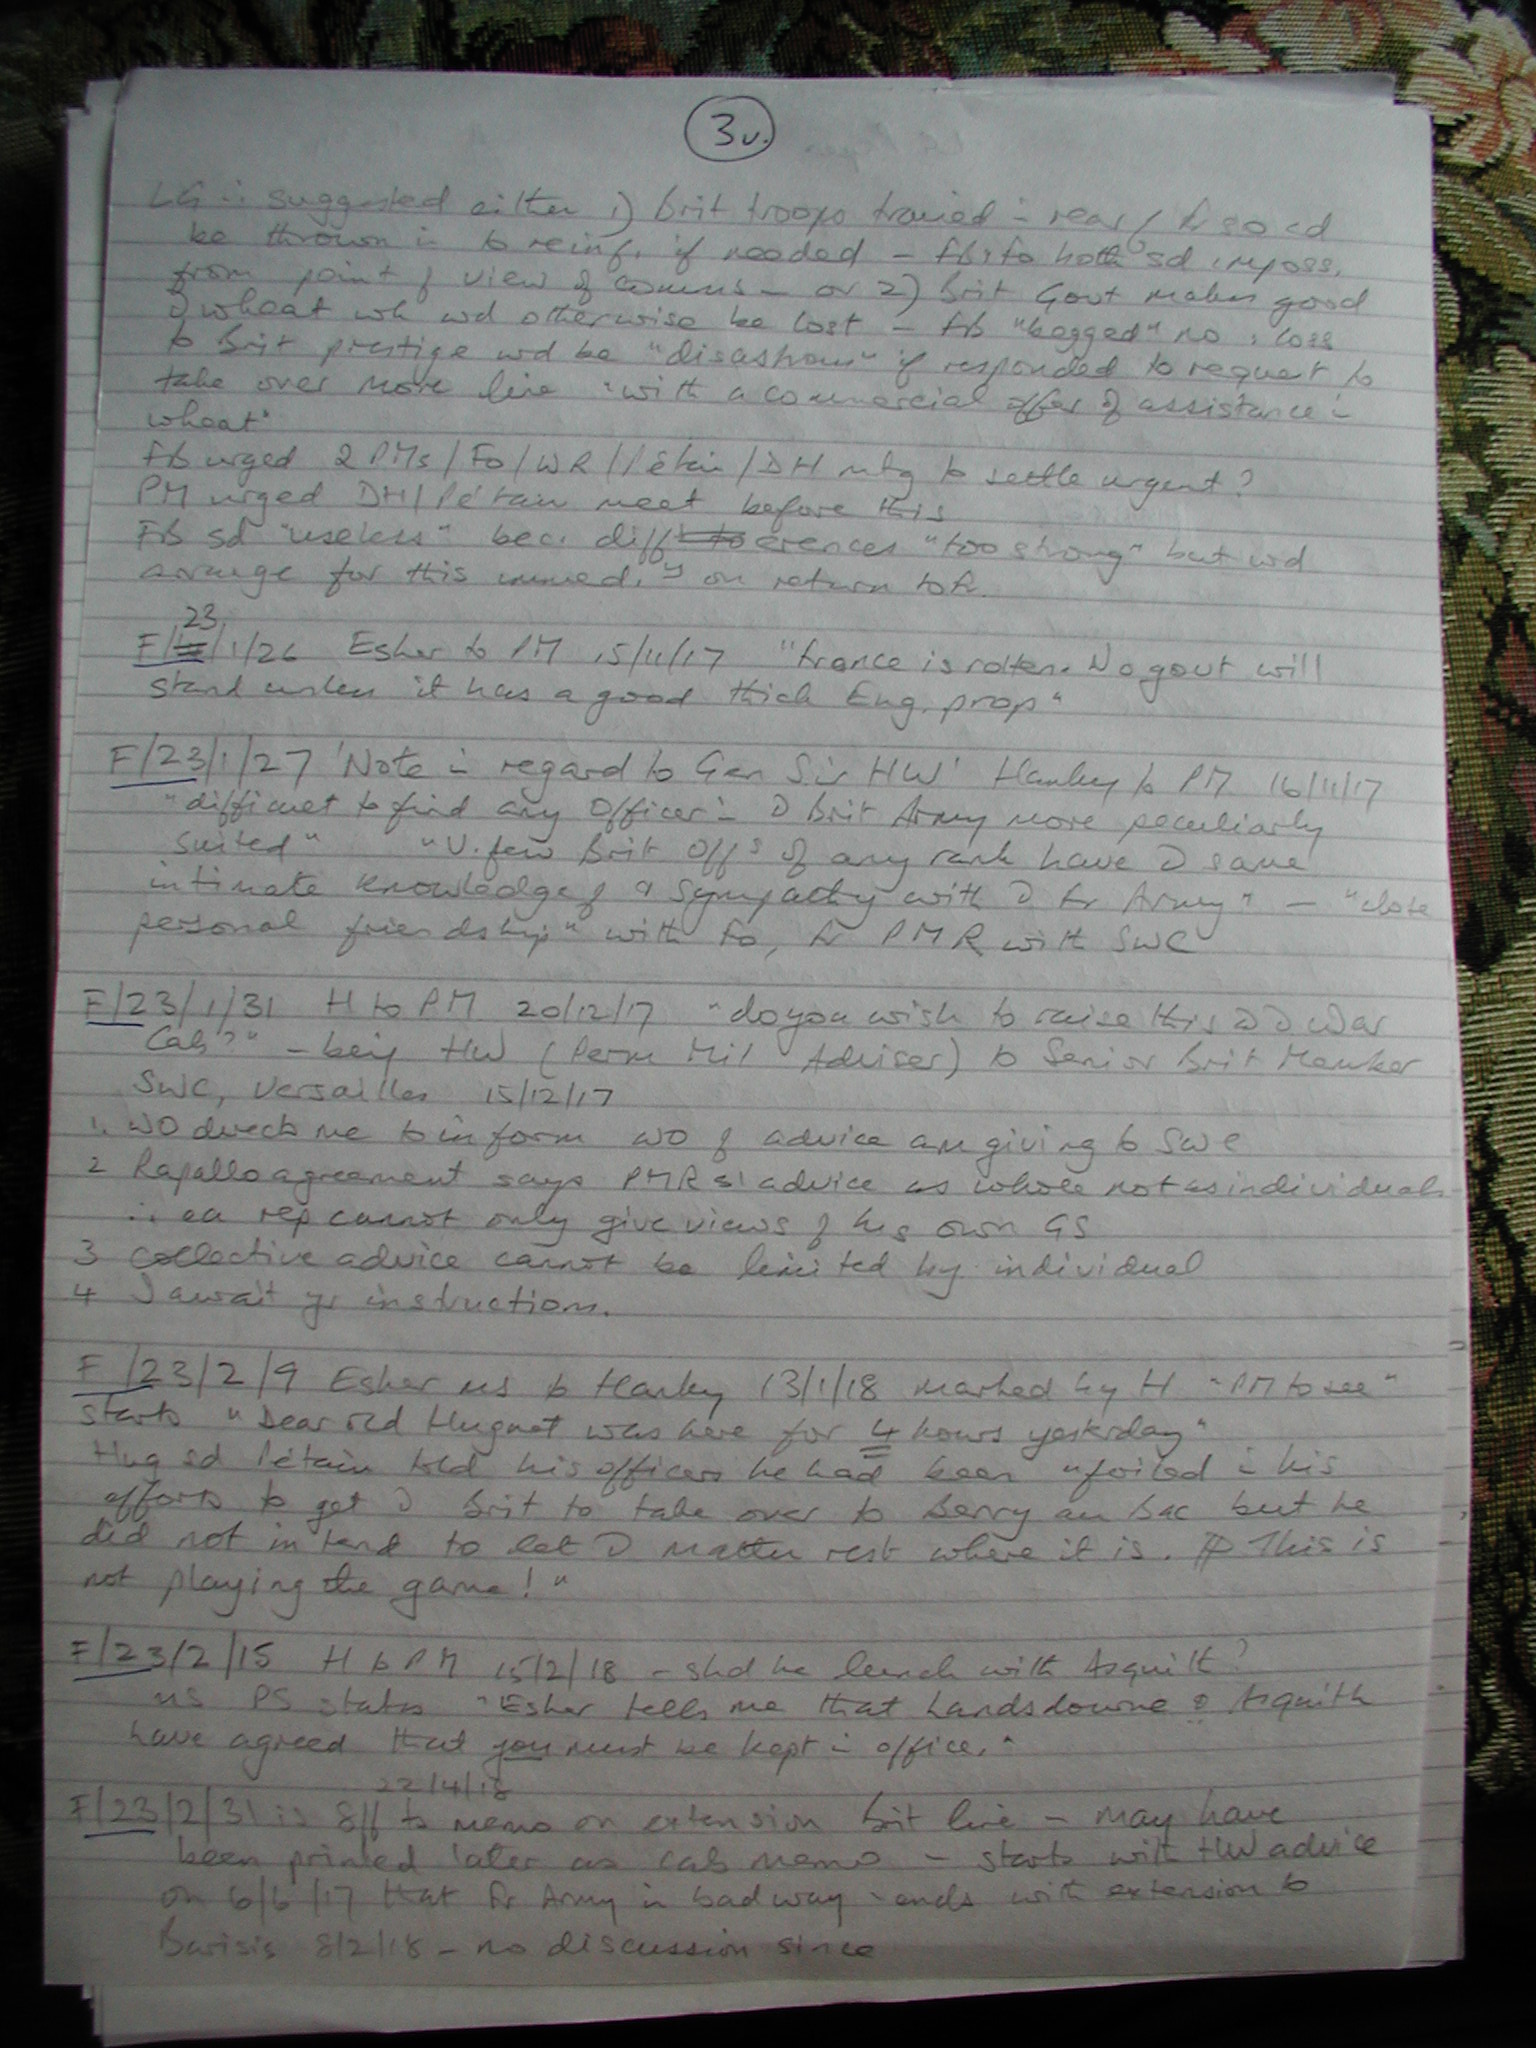 3v.
LG ∴ suggested either 1) Brit troops trained – rear / Fr so cd
be thrown in to reinf. if needed – Fb & Fo both sd imposs.
from point of view of comms – or 2) Brit Govt makes good
wheat wh wd otherwise be lost – Fb "begged" no : loss
to Brit prestige wd be "disastrous" if responded to request to
take over more line "with a commercial offer of assistance –
wheat"
Fb urged 2 PMs / Fo / WR / Pétain / DH mtg to settle urgent?
PM urged DH / Pétain meet before this
Fb sd "useless" bec. differences "too strong" but wd
arrange for this immed.ly on return to Fr.
F/23/1/26 Esher to PM 15/11/17 "France is rotten. No govt will
stand unless it has a good thick Eng. prop"
F/23/1/27 'Note – regard to Gen Sir HW' Hankey to PM 16/11/17
"difficult to find any Officer – Brit Army more peculiarly
suited" "V. few Brit Offs of any rank have same
intimate knowledge of & sympathy with Fr Army" – "close
personal friendship" with Fo, Fr PMR with SWC
F/23/1/31 H to PM 20/12/17 "do you wish to raise this War
Cab?" – being HW (Perm Mil Adviser) to Senior Brit Member
SWC, Versailles 15/12/17
1. WO directs me to inform WO of advice am giving to SWC
2 Rapallo agreement says PMRs' advice as whole not as individuals
∴ ea rep cannot only give views of his own GS
3 collective advice cannot be limited by individual
4 I await yr instructions.
F/23/2/9 Esher ms to Hankey 13/1/18 marked by H "PM to see"
starts "Dear old Huguet was here for 4 hours yesterday"
Hug sd Pétain told his officers he had been "foiled – his
efforts to get Brit to take over to Berry au Bac but he
did not intend to let matter rest where it is. This is
not playing the game!"
F/23/2/15 H to PM 15/2/18 – shd he lunch with Asquith?
ms PS states "Esher tells me that Landsdowne & Asquith
have agreed that you must be kept – office."
22/4/18
F/23/2/31 is 8ff ts memo on extension Brit line – may have
been printed later as Cab memo – starts with HW advice
on 6/6/17 that Fr Army in bad way – ends with extension to
Barisis 8/2/18 – no discussion since